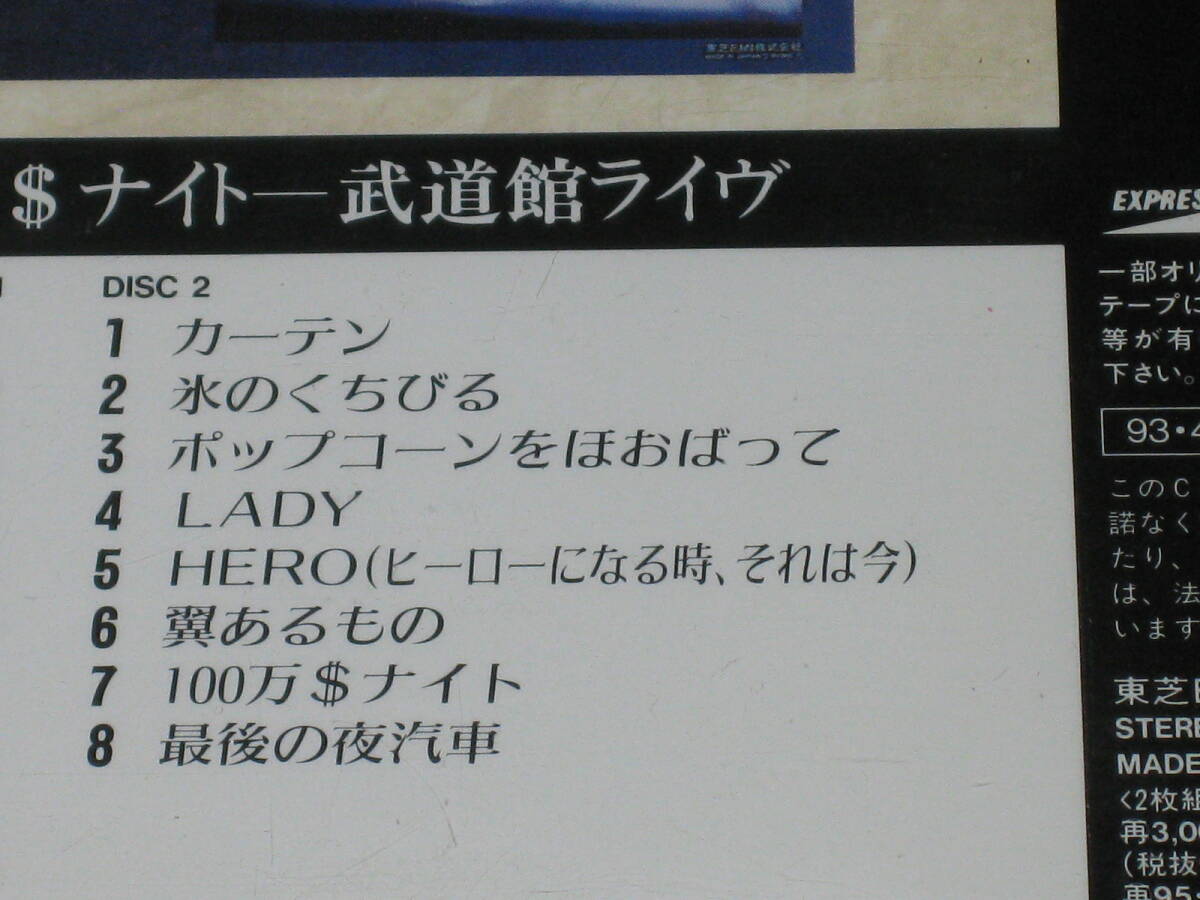 東芝EMI株式会社
$ナイト―武道館ライヴ
DISC 2
1 カーテン
2 氷のくちびる
3 ポップコーンをほおばって
4 LADY
5 HERO(ヒーローになる時、それは今)
6 翼あるもの
7 100万$ナイト
8 最後の夜汽車
EXPRES
一部オリ
テープに
等が有
下さい。
93・4
このC
諾なく
たり、
は、法
います
東芝E
STERE
MADE
<2枚組
再3,00
(税抜
再95・